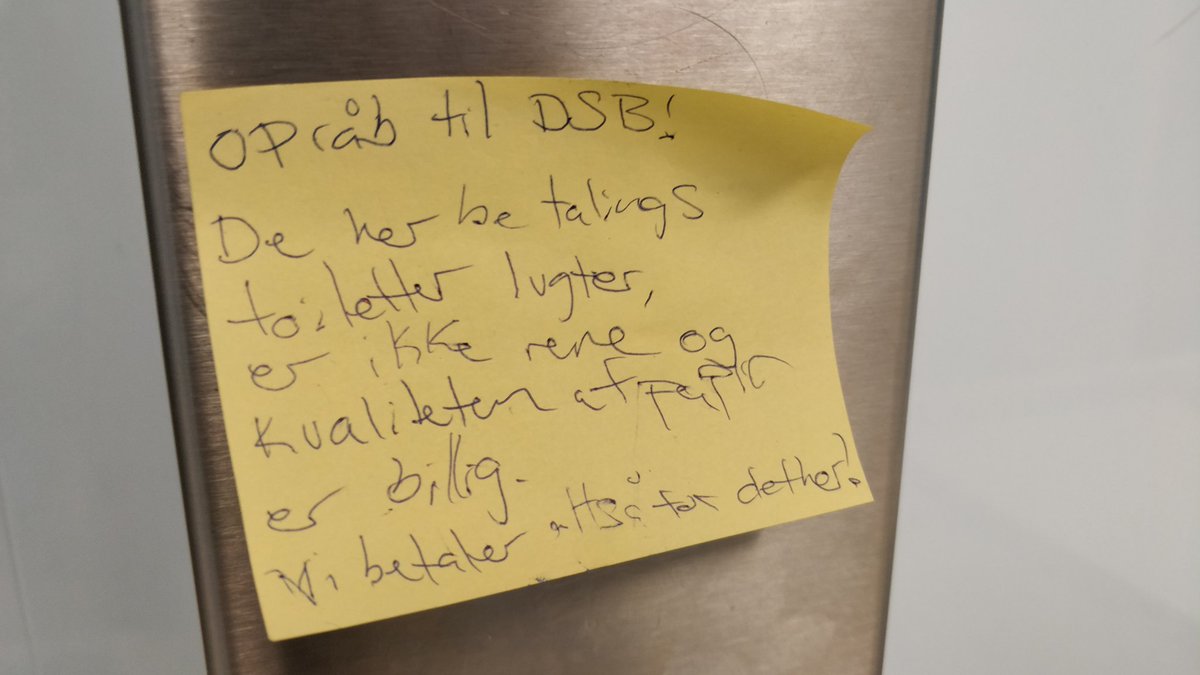 OPråb til DSB!
De her betalings
toiletter lugter,
er ikke rene og
kvaliteten af papir
er billig.
Vi betaler altså for det her!